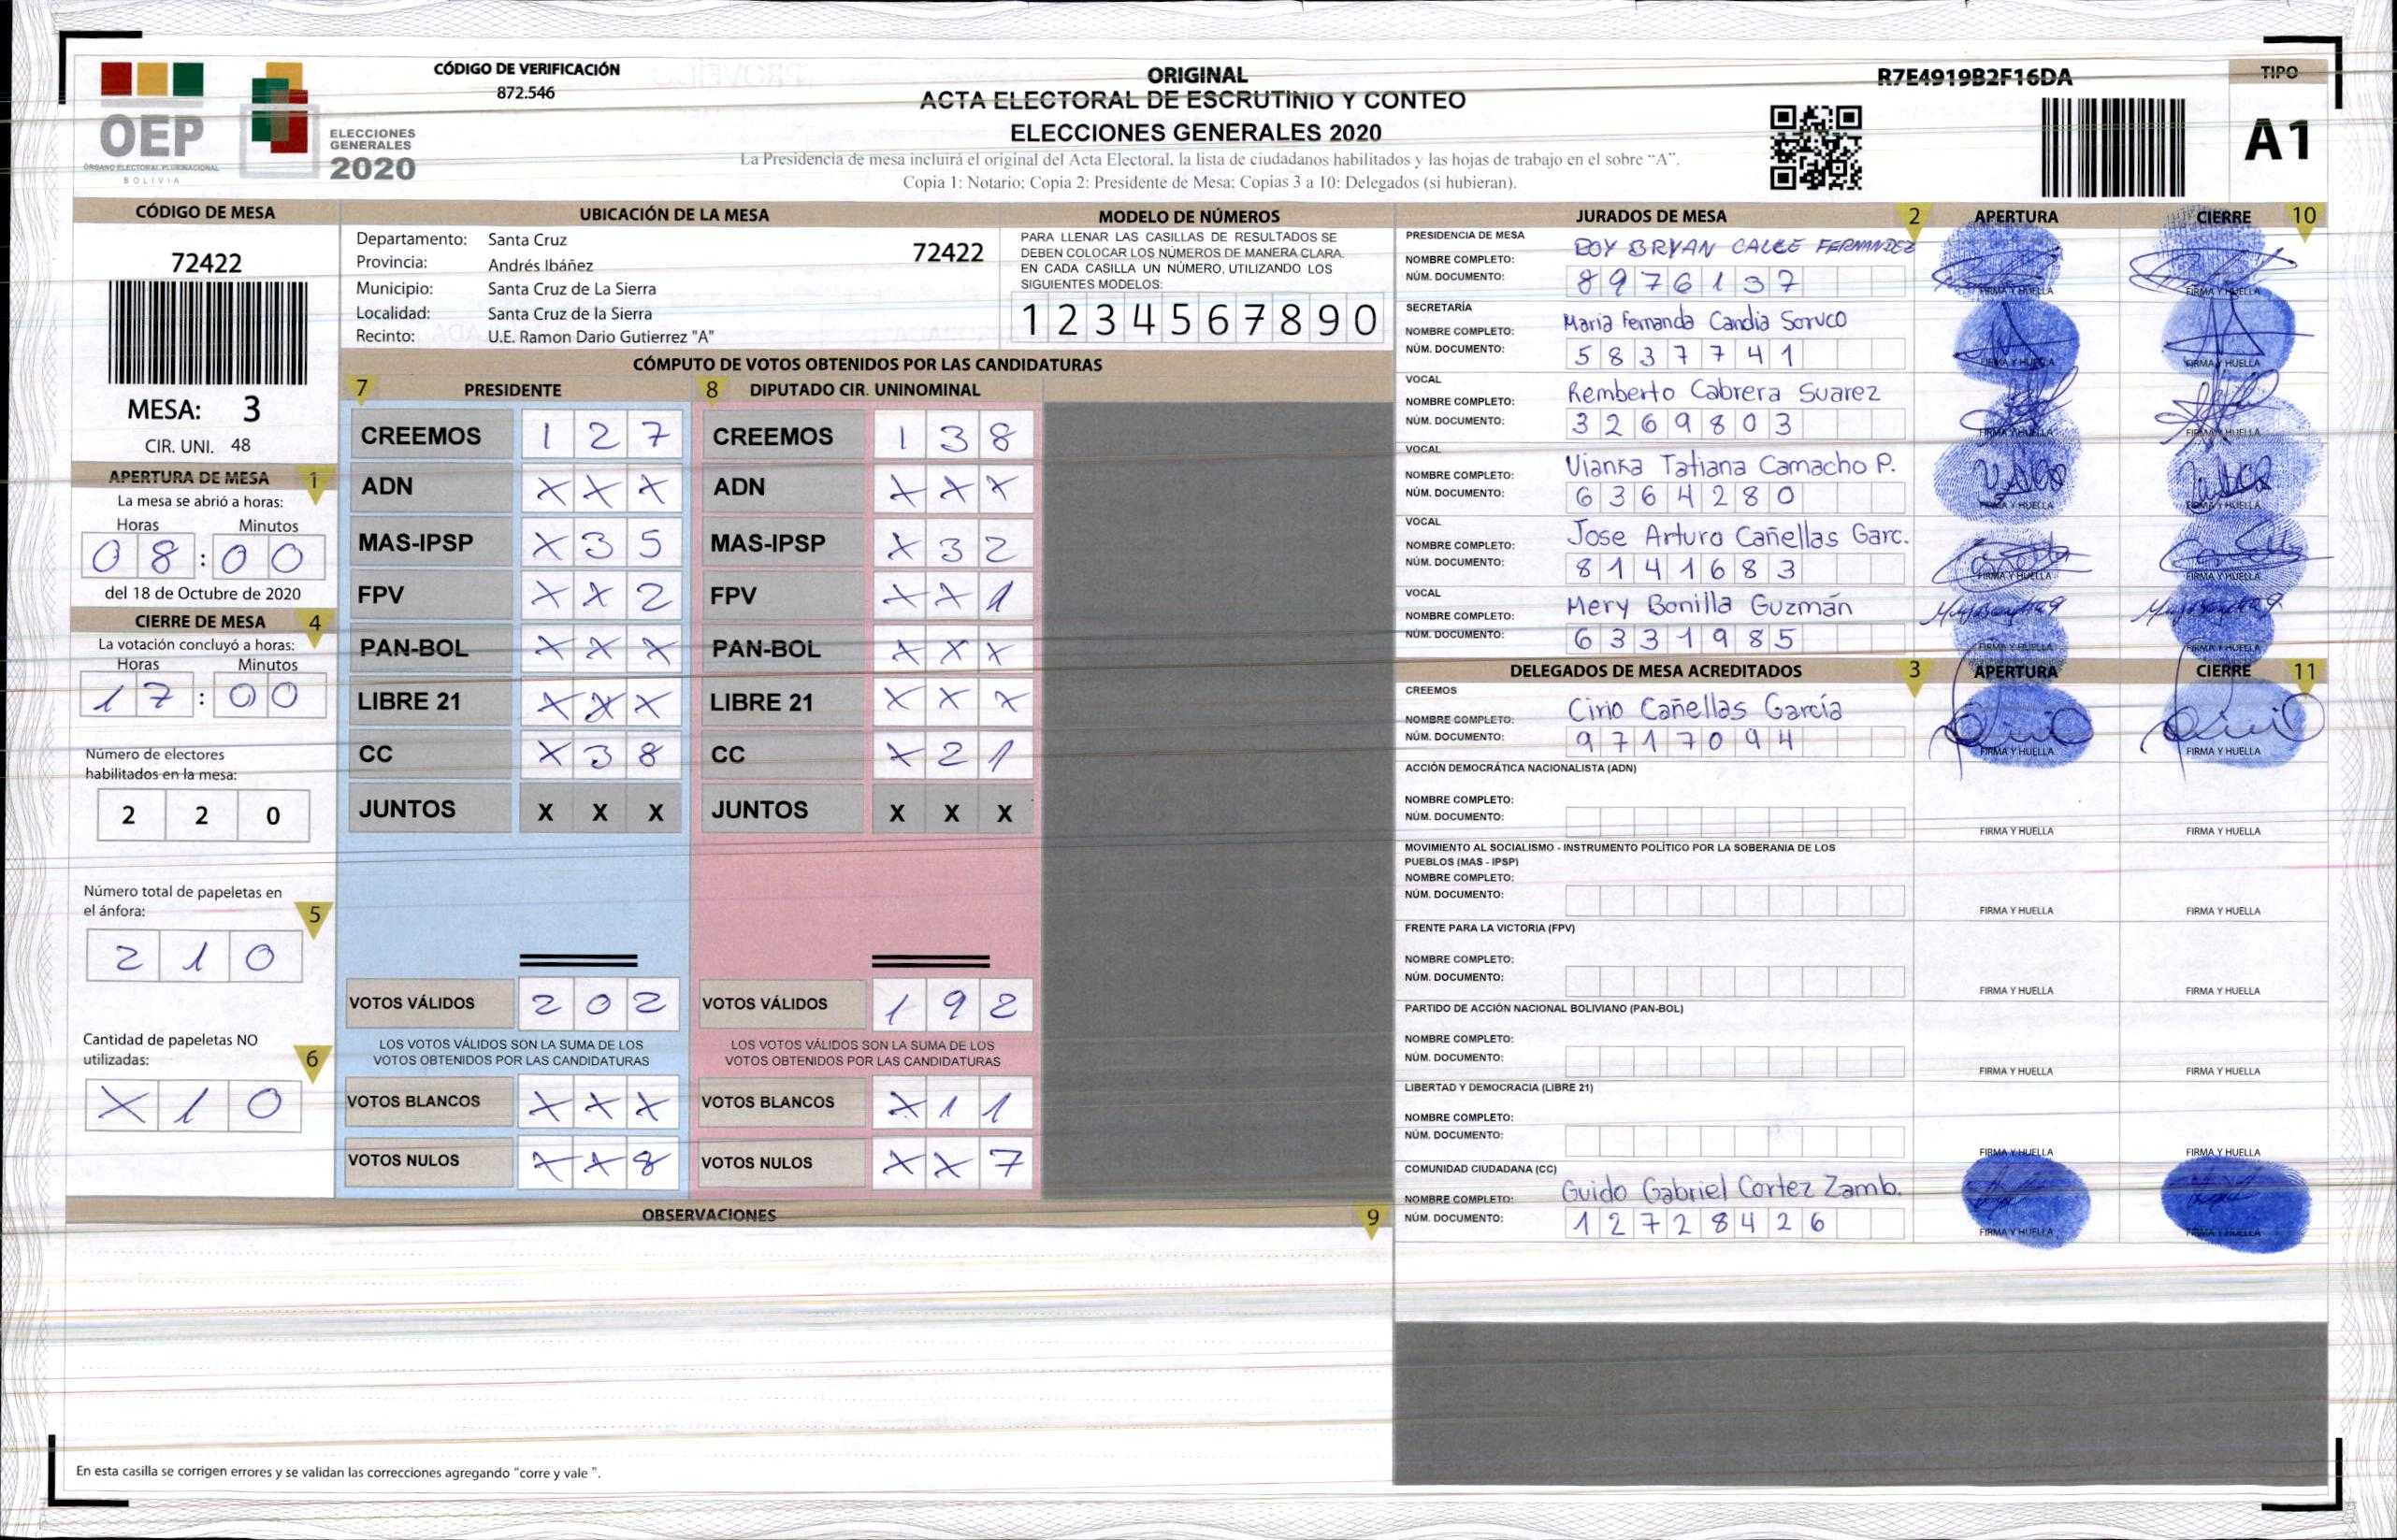 OEP
ÓRGANO ELECTORAL PLURINACIONAL
BOLIVIA
ELECCIONES
GENERALES
2020
CÓDIGO DE VERIFICACIÓN
872.546
ORIGINAL
ACTA ELECTORAL DE ESCRUTINIO Y CONTEO
ELECCIONES GENERALES 2020
La Presidencia de mesa incluirá el original del Acta Electoral, la lista de ciudadanos habilitados y las hojas de trabajo en el sobre “A”.
Copia 1: Notario; Copia 2: Presidente de Mesa; Copias 3 a 10: Delegados (si hubieran).
R7E4919B2F16DA
TIPO
A1
CÓDIGO DE MESA
72422
MESA: 3
CIR. UNI. 48
APERTURA DE MESA 1
La mesa se abrió a horas:
Horas Minutos
08:00
del 18 de Octubre de 2020
CIERRE DE MESA 4
La votación concluyó a horas:
Horas Minutos
17:00
Número de electores
habilitados en la mesa:
2 2 0
Número total de papeletas en
el ánfora: 5
2 1 0
Cantidad de papeletas NO
utilizadas: 6
X 1 0
UBICACIÓN DE LA MESA
Departamento: Santa Cruz 72422
Provincia: Andrés Ibáñez
Municipio: Santa Cruz de La Sierra
Localidad: Santa Cruz de la Sierra
Recinto: U.E. Ramon Dario Gutierrez "A"
MODELO DE NÚMEROS
PARA LLENAR LAS CASILLAS DE RESULTADOS SE
DEBEN COLOCAR LOS NÚMEROS DE MANERA CLARA.
EN CADA CASILLA UN NÚMERO, UTILIZANDO LOS
SIGUIENTES MODELOS:
1 2 3 4 5 6 7 8 9 0
CÓMPUTO DE VOTOS OBTENIDOS POR LAS CANDIDATURAS
7 PRESIDENTE 8 DIPUTADO CIR. UNINOMINAL
CREEMOS 1 2 7 CREEMOS 1 3 8
ADN X X X ADN X X X
MAS-IPSP X 3 5 MAS-IPSP X 3 2
FPV X X 2 FPV X X 1
PAN-BOL X X X PAN-BOL X X X
LIBRE 21 X X X LIBRE 21 X X X
CC X 3 8 CC X 2 1
JUNTOS X X X JUNTOS X X X
VOTOS VÁLIDOS 2 0 2 VOTOS VÁLIDOS 1 9 2
LOS VOTOS VÁLIDOS SON LA SUMA DE LOS LOS VOTOS VÁLIDOS SON LA SUMA DE LOS
VOTOS OBTENIDOS POR LAS CANDIDATURAS VOTOS OBTENIDOS POR LAS CANDIDATURAS
VOTOS BLANCOS X X X VOTOS BLANCOS X 1 1
VOTOS NULOS X X 8 VOTOS NULOS X X 7
OBSERVACIONES 9
En esta casilla se corrigen errores y se validan las correcciones agregando "corre y vale ".
JURADOS DE MESA 2 APERTURA CIERRE 10
PRESIDENCIA DE MESA
NOMBRE COMPLETO: ROY BRYAN CALLE FERNANDEZ
NÚM. DOCUMENTO: 8976137
FIRMA Y HUELLA FIRMA Y HUELLA
SECRETARÍA
NOMBRE COMPLETO: Maria Fernanda Candia Soruco
NÚM. DOCUMENTO: 5837741
FIRMA Y HUELLA FIRMA Y HUELLA
VOCAL
NOMBRE COMPLETO: Remberto Cabrera Suarez
NÚM. DOCUMENTO: 3269803
FIRMA Y HUELLA FIRMA Y HUELLA
VOCAL
NOMBRE COMPLETO: Vianka Tatiana Camacho P.
NÚM. DOCUMENTO: 6364280
FIRMA Y HUELLA FIRMA Y HUELLA
VOCAL
NOMBRE COMPLETO: Jose Arturo Cañellas Garc.
NÚM. DOCUMENTO: 8141683
FIRMA Y HUELLA FIRMA Y HUELLA
VOCAL
NOMBRE COMPLETO: Mery Bonilla Guzmán
NÚM. DOCUMENTO: 6331985
FIRMA Y HUELLA FIRMA Y HUELLA
DELEGADOS DE MESA ACREDITADOS 3 APERTURA CIERRE 11
CREEMOS
NOMBRE COMPLETO: Cirio Cañellas García
NÚM. DOCUMENTO: 9717094
FIRMA Y HUELLA FIRMA Y HUELLA
ACCIÓN DEMOCRÁTICA NACIONALISTA (ADN)
NOMBRE COMPLETO:
NÚM. DOCUMENTO:
FIRMA Y HUELLA FIRMA Y HUELLA
MOVIMIENTO AL SOCIALISMO - INSTRUMENTO POLÍTICO POR LA SOBERANIA DE LOS
PUEBLOS (MAS - IPSP)
NOMBRE COMPLETO:
NÚM. DOCUMENTO:
FIRMA Y HUELLA FIRMA Y HUELLA
FRENTE PARA LA VICTORIA (FPV)
NOMBRE COMPLETO:
NÚM. DOCUMENTO:
FIRMA Y HUELLA FIRMA Y HUELLA
PARTIDO DE ACCIÓN NACIONAL BOLIVIANO (PAN-BOL)
NOMBRE COMPLETO:
NÚM. DOCUMENTO:
FIRMA Y HUELLA FIRMA Y HUELLA
LIBERTAD Y DEMOCRACIA (LIBRE 21)
NOMBRE COMPLETO:
NÚM. DOCUMENTO:
FIRMA Y HUELLA FIRMA Y HUELLA
COMUNIDAD CIUDADANA (CC)
NOMBRE COMPLETO: Guido Gabriel Cortez Zamb.
NÚM. DOCUMENTO: 12728426
FIRMA Y HUELLA FIRMA Y HUELLA